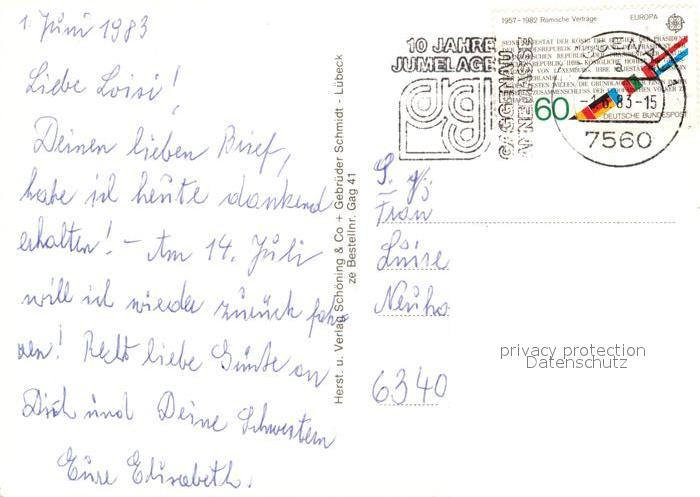 1. Juni 1983
Liebe Loisi!
Deinen lieben Brief,
habe ich heute dankend
erhalten! - Am 14. Juli
will ich wieder zurück fah-
ren! Recht liebe Grüße an
Dich und Deine Schwestern
Eure Elisabeth.
Herst. u. Verlag Schöning & Co + Gebrüder Schmidt - Lübeck
ze Bestellnr. Gag 41
10 JAHRE
JUMELAGE
GAGGENAU
ANNEMASSE
1957-1982 Römische Verträge EUROPA
60
DEUTSCHE BUNDESPOST
-1.6.83-15
7560
Frau
Luise
Neuho
6340
privacy protection
Datenschutz